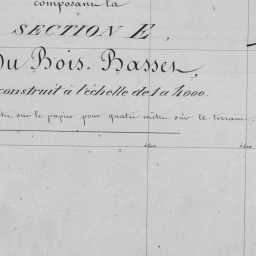 composant la
SECTION E,
du Bois-Basset,
construit à l'échelle de 1 a 4000.
sur le papier pour quatre mètres sur le terrain.